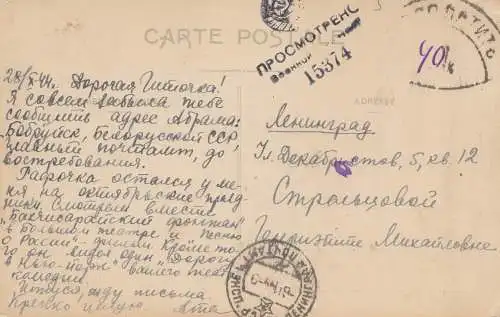 CARTE POSTALE
ПРОСМОТРЕНО
Военной
15374
ДОПЛАТИТЬ
40 к
28/X-44г. Дорогая Итточка!
Я совсем забыла тебе
сообщить адрес Абрама:
Бобруйск, Белорусской ССР,
главный почтамт, до
востребования.
Рафочка остался у ме-
ня на октябрьские празд-
ники. Смотрели вместе
"Бахчисарайский фонтан"
в Большом театре и "Песню
о России" - фильм. Кроме то-
го он видел один "Дорогу
в Нью-Йорк" вашего теат.
комедии.
Итуся, жду письма.
Крепко целую
ADRESSE
Ленинград
Ул. Декабристов, 5, кв. 12
Стрельцовой
Генриэтте Михайловне
ЛЕНИНГРАД